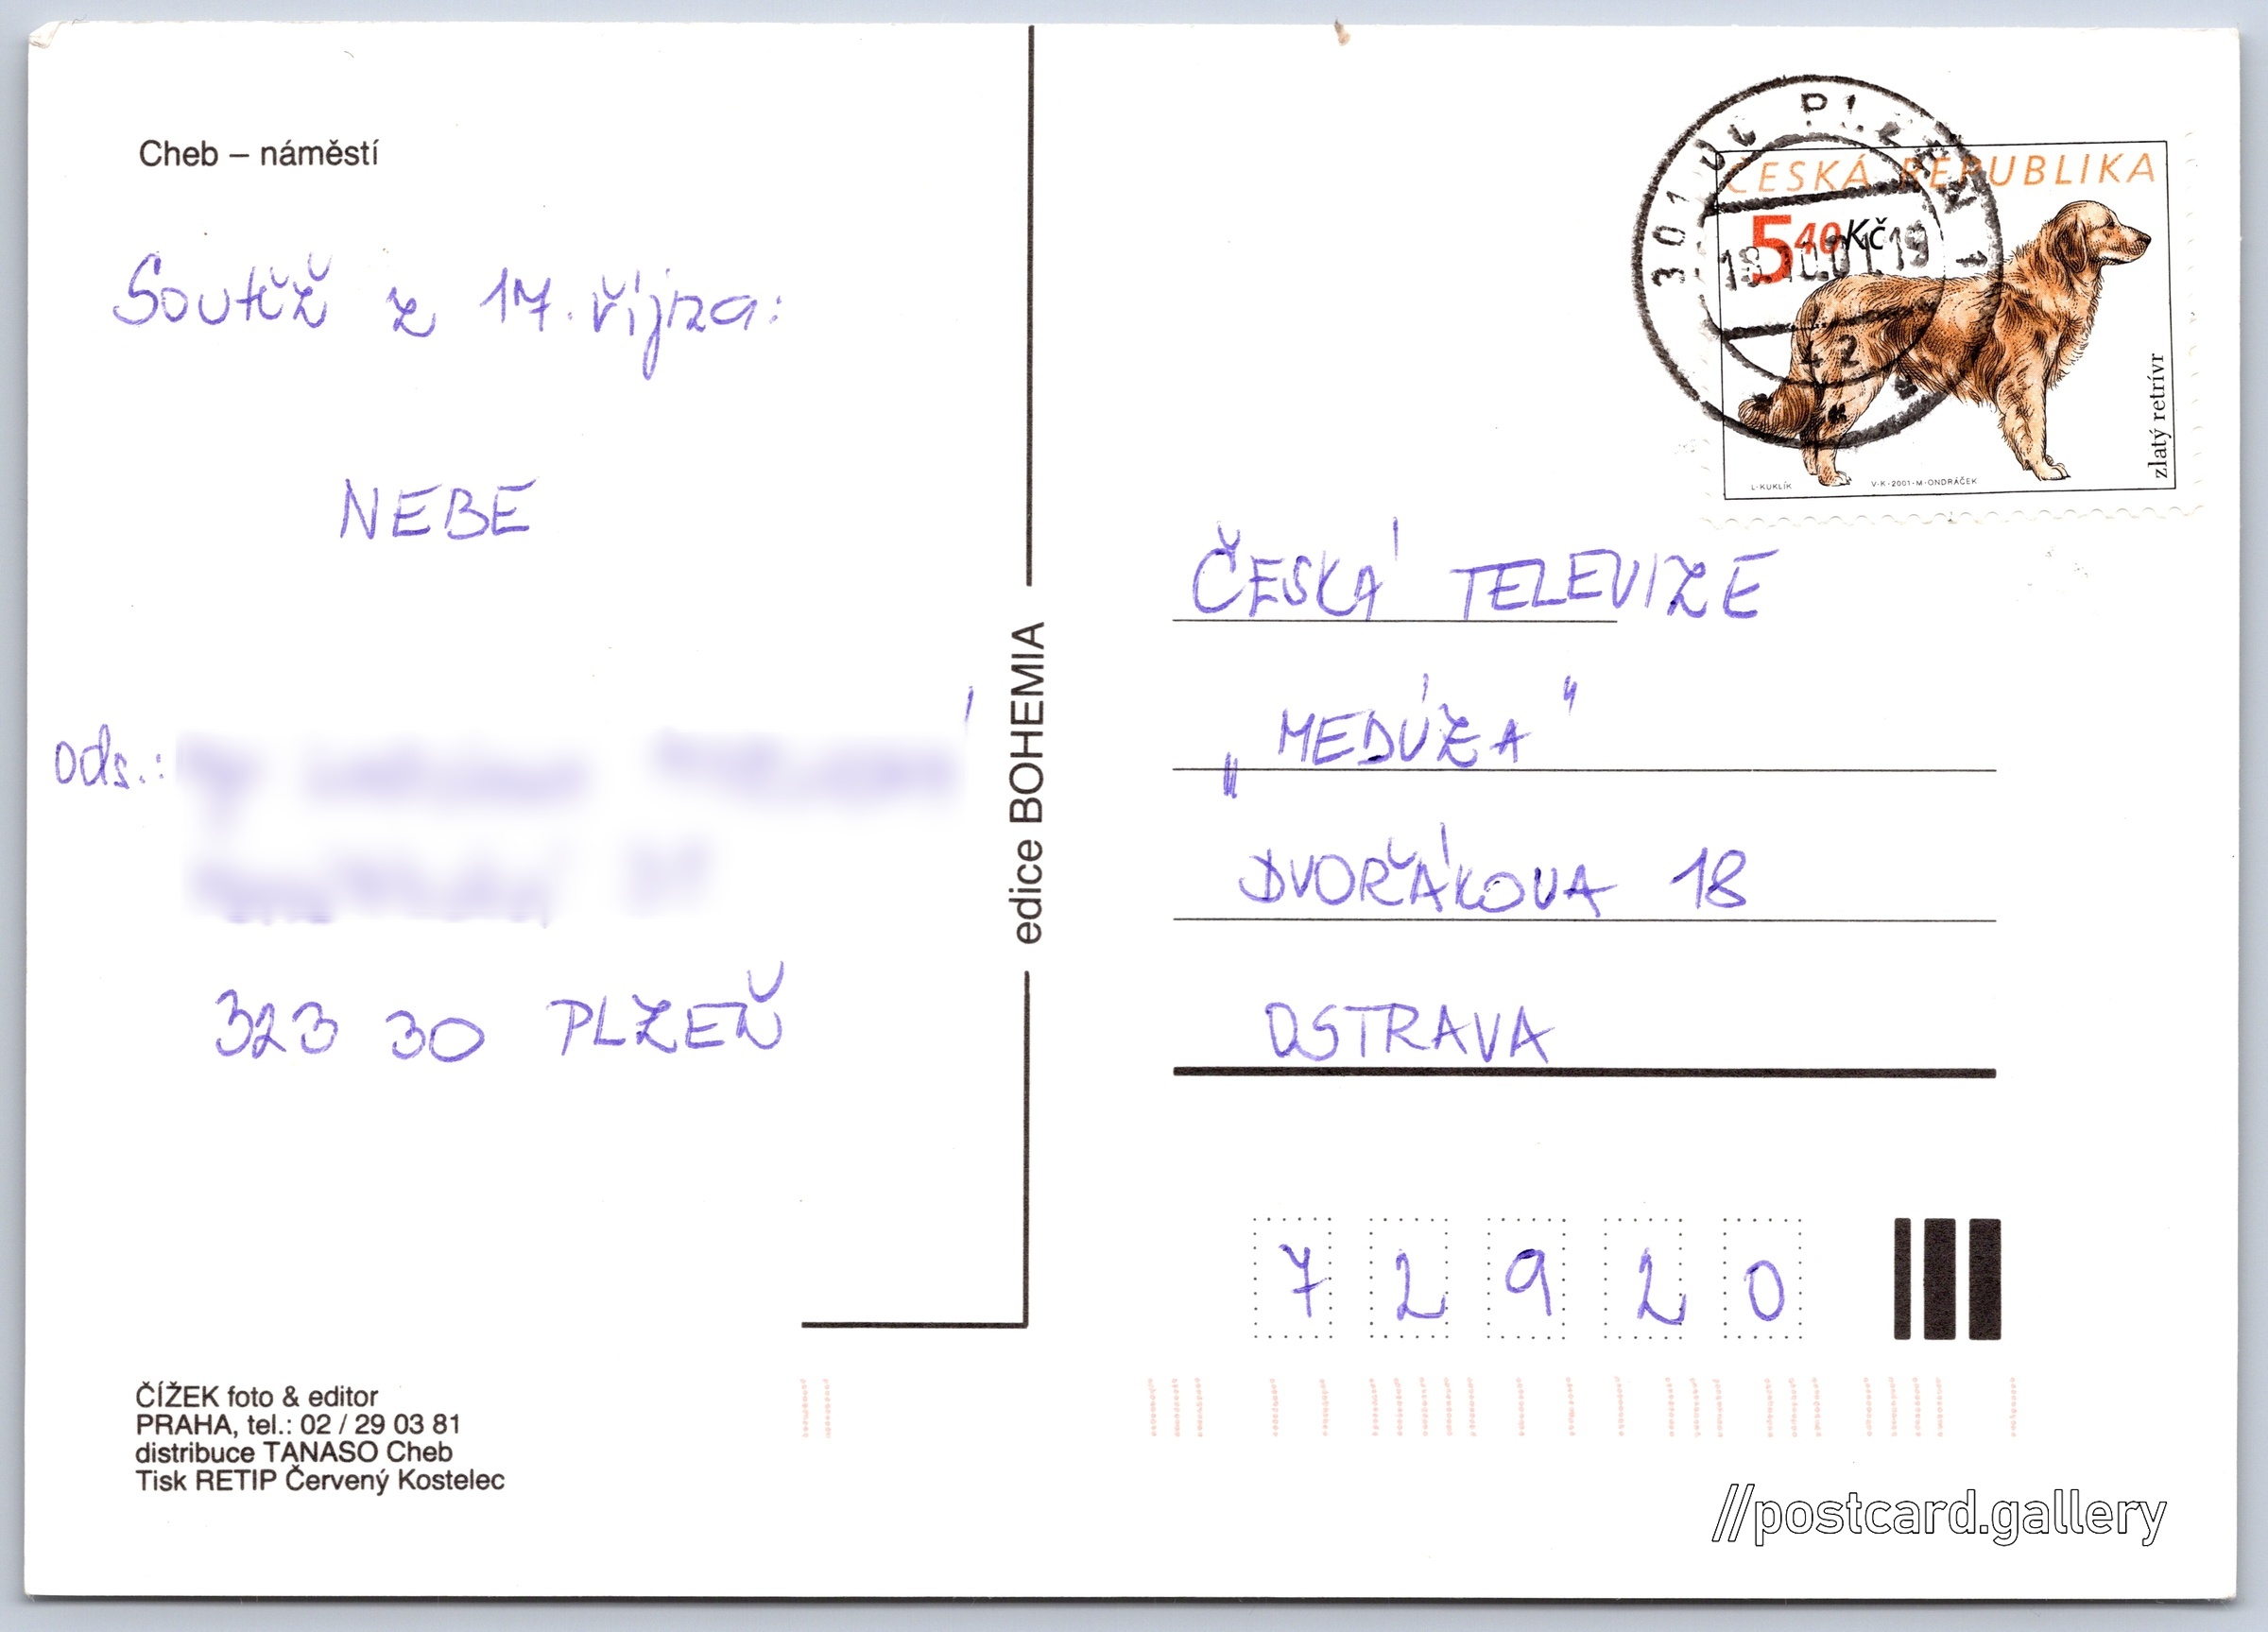 Cheb – náměstí
Soutěž z 17. října:
NEBE
ods.:
323 30 PLZEŇ
ČÍŽEK foto & editor
PRAHA, tel.: 02 / 29 03 81
distribuce TANASO Cheb
Tisk RETIP Červený Kostelec
edice BOHEMIA
301 00 PLZEŇ 1
18.10.01.19
42
ČESKÁ REPUBLIKA
5 40 Kč
zlatý retrívr
L·KUKLÍK
V·K·2001·M·ONDRÁČEK
ČESKÁ TELEVIZE
„MEDÚZA"
DVOŘÁKOVA 18
OSTRAVA
7 2 9 2 0
//postcard.gallery